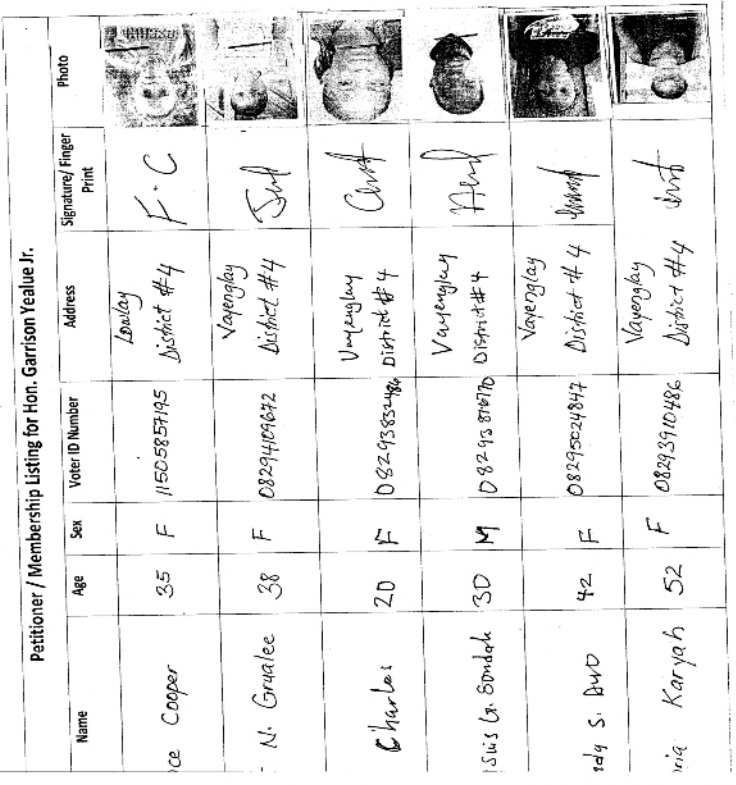 Petitioner / Membership Listing for Hon. Garrison Yealue Jr.
Name Age Sex Voter ID Number Address Signature/ Finger Print Photo
ce Cooper 35 F 11505857195 District #4 F.C
N. Grualee 38 F 08294109672 Vayenglay District #4
Charles 20 F 08293832486 Vayenglay District #4
G. Sondah 30 M Vayenglay District #4
S. 42 F 08295024847 Vayenglay District #4
oria Karyah 52 F 08293910486 Vayenglay District #4